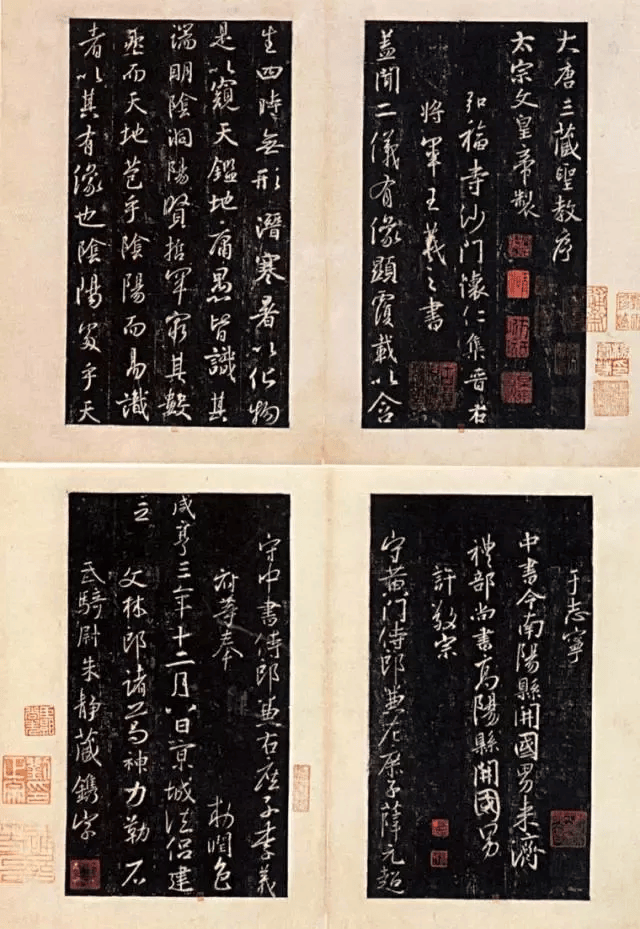 大唐三藏聖教序
太宗文皇帝製
弘福寺沙門懷仁集晉右
將軍王羲之書
盖聞二儀有像顯覆載以含
生四時無形潛寒暑以化物
是以窺天鑑地庸愚皆識其
端明陰洞陽賢哲罕窮其數
然而天地苞乎陰陽而易識
者以其有像也陰陽處乎天
于志寧
中書令南陽縣開國男来濟
禮部尚書高陽縣開國男
許敬宗
守黄門侍郎兼左庶子薛元超
守中書侍郎兼右庶子李義
府等奉 勑潤色
咸亨三年十二月八日京城法侶建
立
文林郎諸葛神力勒石
武騎尉朱静藏鐫字